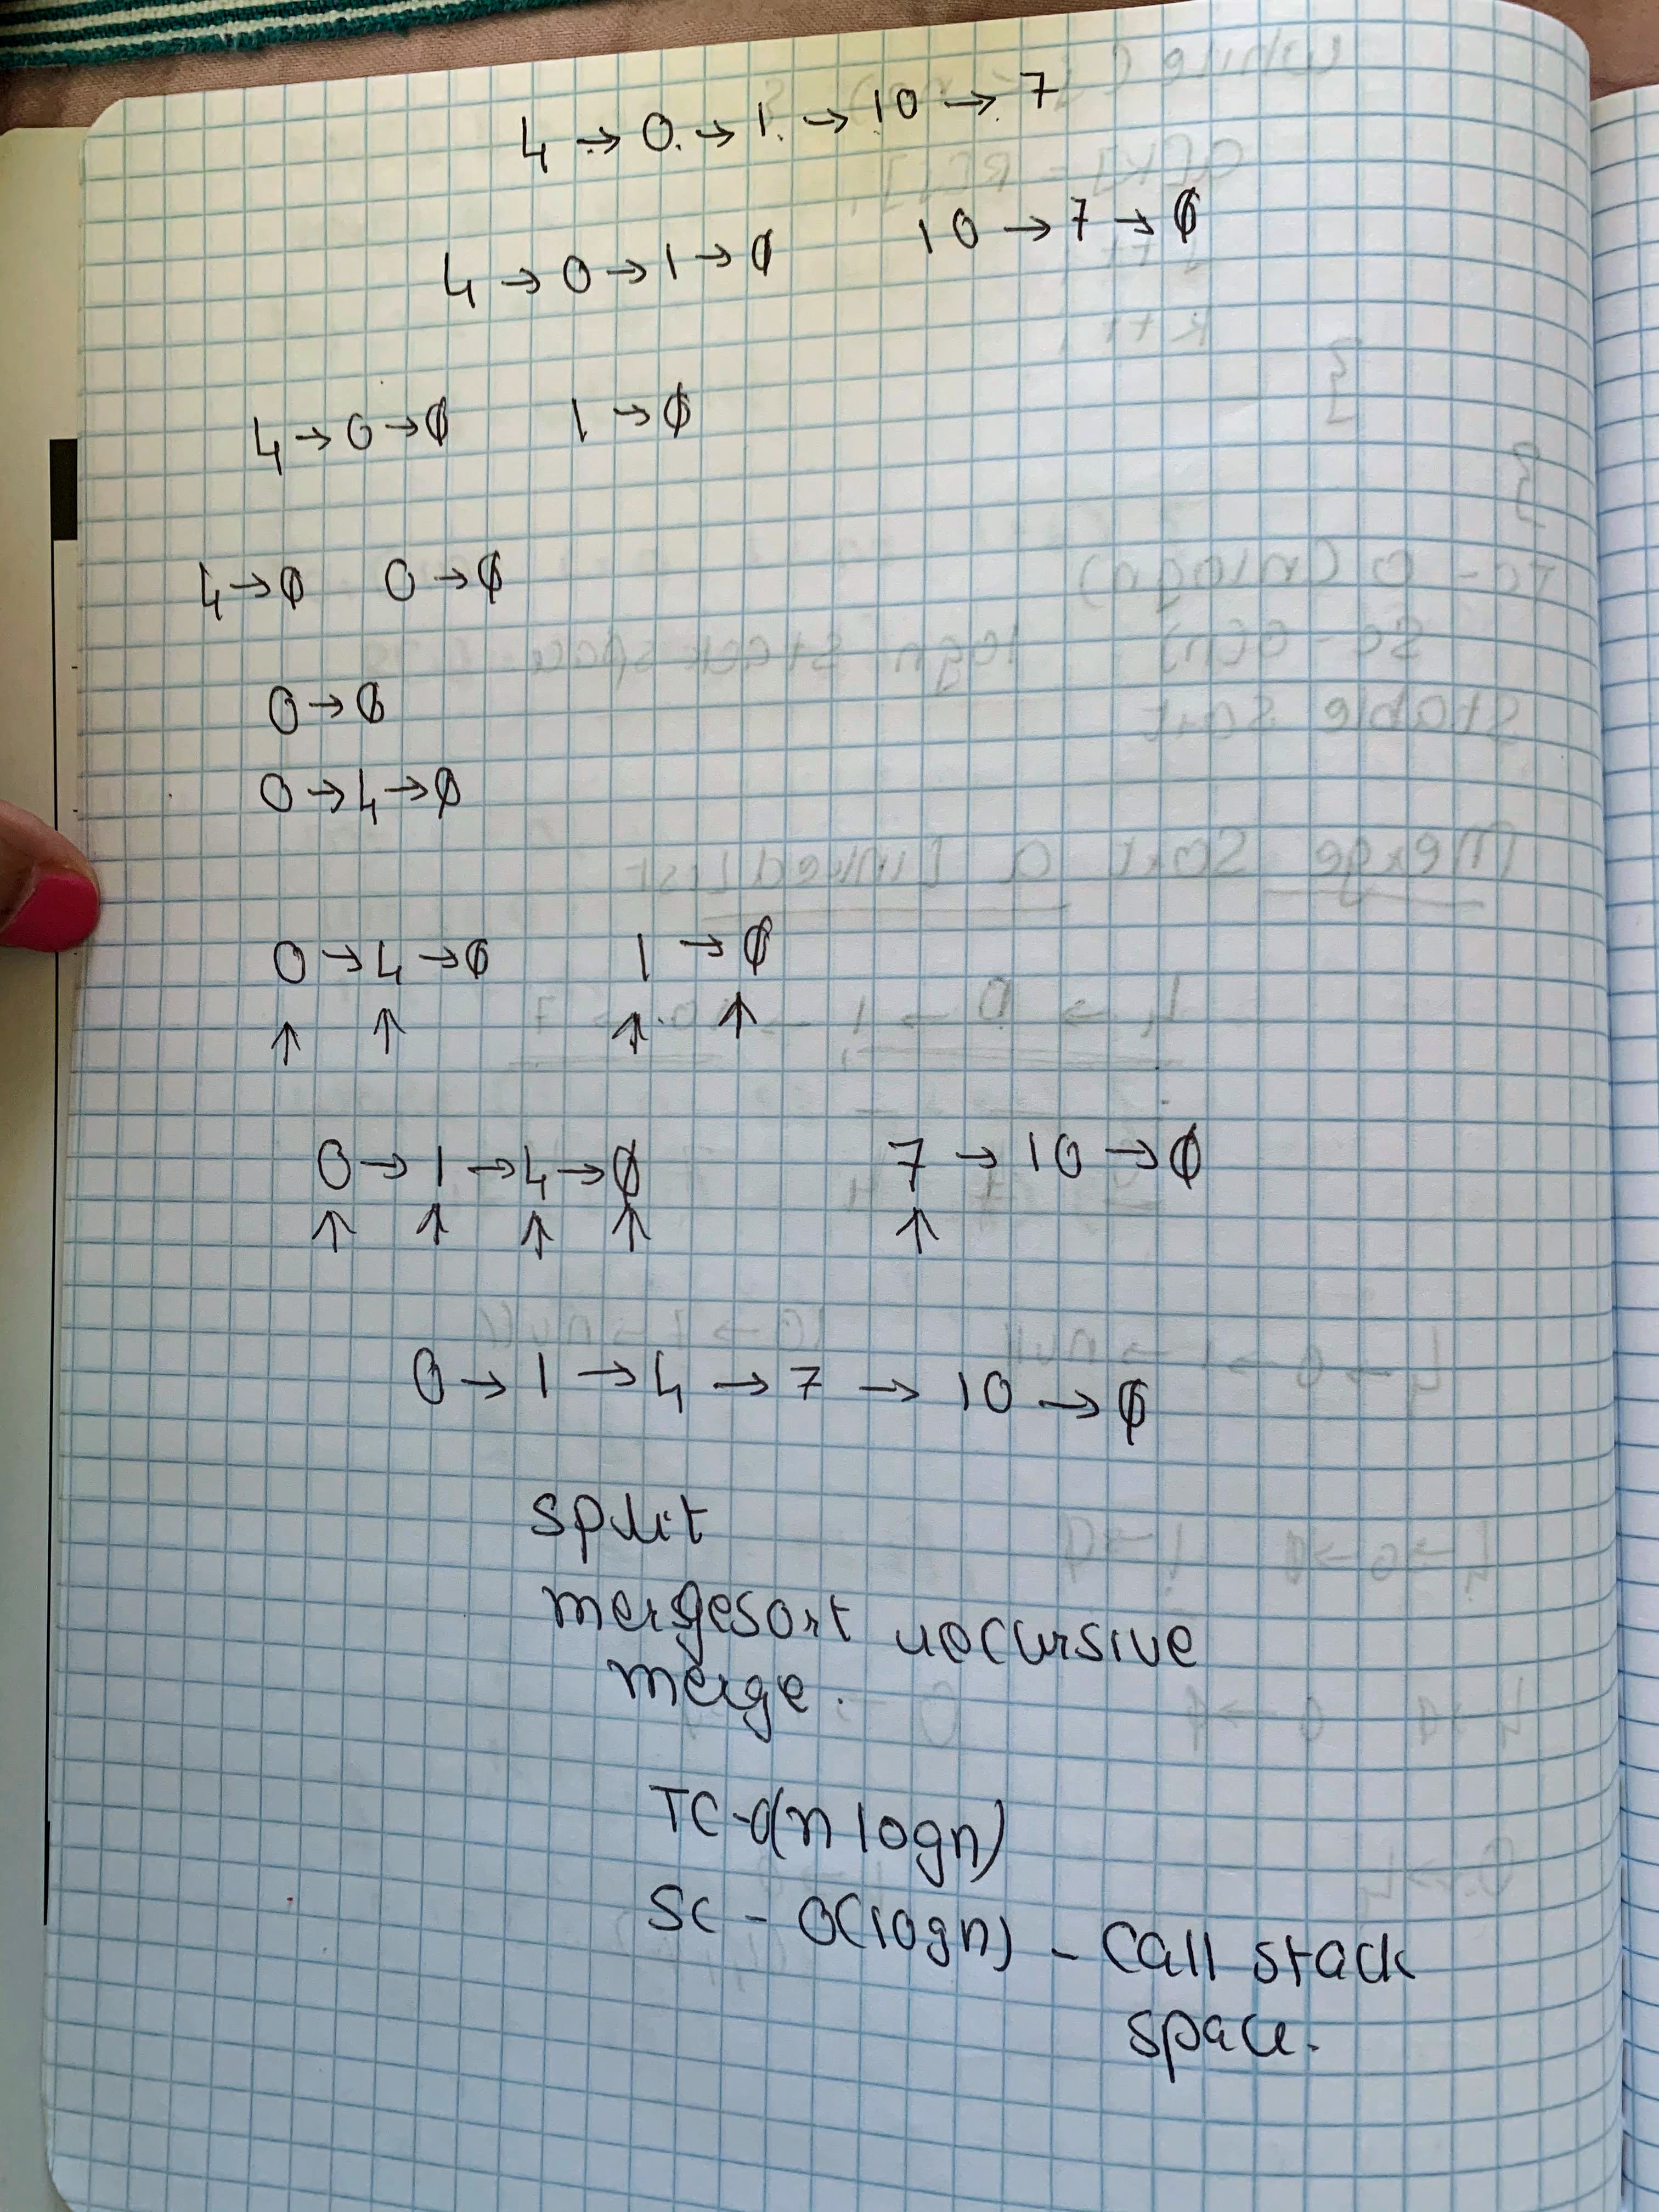 4 → 0 → 1 → 10 → 7
4 → 0 → 1 → ∅ 10 → 7 → ∅
4 → 0 → ∅ 1 → ∅
4 → ∅ 0 → ∅
0 → ∅
0 → 4 → ∅
0 → 4 → ∅ 1 → ∅
↑ ↑ ↑ ↑
0 → 1 → 4 → ∅ 7 → 10 → ∅
↑ ↑ ↑ ↑ ↑
0 → 1 → 4 → 7 → 10 → ∅
split
mergesort recursive
merge.
TC - O(n logn)
SC - O(logn) - Call stack
space.